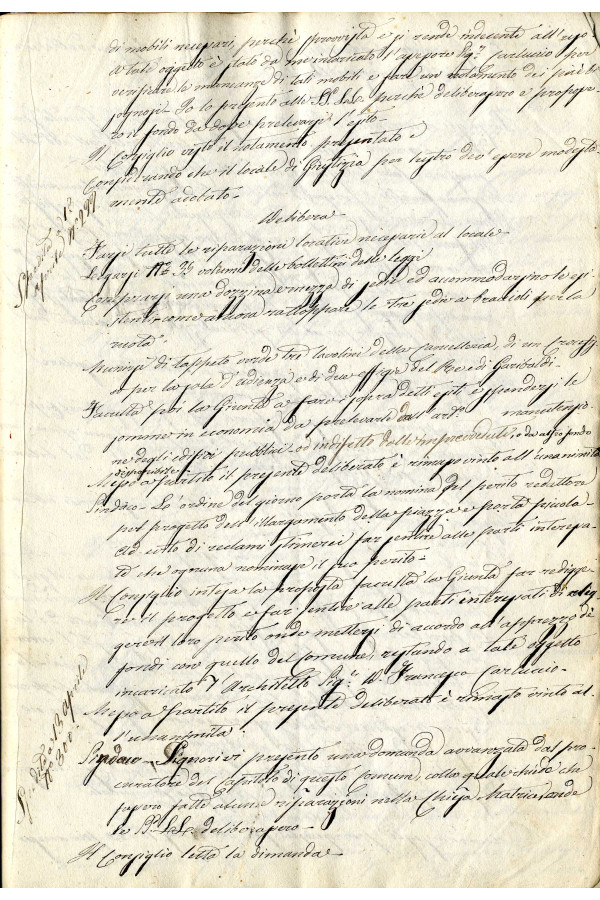 di mobili necessarj, perchè sprovvista e si rende indecente all'uso
A tale oggetto è stato da me incaricato l'assessore Sig.r Carluccio per
verificare le mancanze di tali mobili e fare un notamento dei più bi
sognosi. Io lo presento alle SS. LL. perchè deliberassero e propones
sero il fondo da dove prelevarsi l'esito.
Il Consiglio visto il notamento presentato e
Considerando che il locale di Giustizia per lustro dev'essere modesta
mente adobato.
Delibera
Spedita
Aprile N° 299
Farsi tutte le riparazioni locative necessarie al locale
Legarsi N° 39 volumi delle bollettini delle leggi
Comprarsi una dozzina e mezza di sedie ed accommodarsino le esi
stenti, come ancora rattoppare le tre sedie a bracciuoli per la
ruota.
Munirsi di tappeto verde tre tavolini della cancelleria, di un Crocefis
so per la sala d'udienza e di due effigie del Re e di Garibaldi.
Faculta poi la Giunta a fare l'opera detti esiti e spendersi le
somme in economia da prelevarle dall'art.° manutenzio
ne degli edifizi pubblici od in difetto dalle imprevedute, o da altro fondo
disponibile.
Messo a partito il presente deliberato è rimasto vinto all'unanimità
Sindaco. L'ordine del giorno porta la nomina del perito redattore
pel progetto dell'allargamento della piazza e porta piccola.
Ad evito di reclami stimerei far sentire alle parti interessa
te che ognuna nominasse il suo perito.
Il Consiglio intesa la proposta faculta la Giunta far redigge
re il progetto e far sentire alle parti interessati di elig
gere il loro perito onde mettersi di accordo all'apprezzo de'
fondi con quello del Comune, restando a tale oggetto
incaricato l'Architetto Sig.r D. Francesco Carluccio.
Spedita 13 Aprile
N° 300
Messo a partito il presente deliberato è rimasto vinto al
l'unanimità.
Sindaco. Signori vi presento una domanda avvanzata dal pro
curatore del Capitolo di questo Comune, colla quale chiede che
fussero fatte alcune riparazioni nella Chiesa Matrice, onde
le SS. LL. deliberassero.
Il Consiglio letta la dimanda